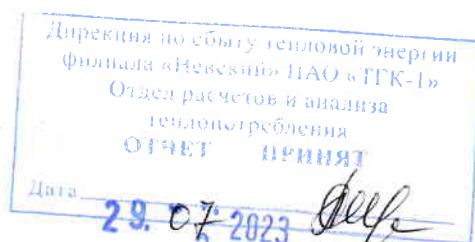 Дирекция по сбыту тепловой энергии
филиала «Невский» ПАО «ТГК-1»
Отдел расчетов и анализа
теплопотребления
ОТЧЕТ ПРИНЯТ
Дата
29. 07 2023